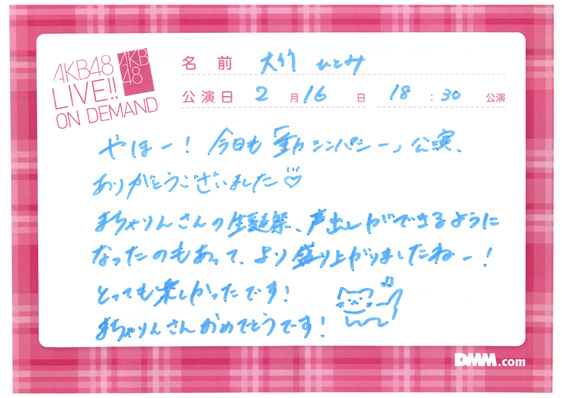 AKB48
LIVE!!
ON DEMAND
AKB
48
名前 大竹 ひとみ
公演日 2月16日 18:30公演
やほー！今日も「僕の太陽」公演、
ありがとうございました♡
まちゃりんさんの生誕祭、声出しができるように
なったのもあって、より盛り上がりましたねー！
とっても楽しかったです！
まちゃりんさんおめでとうです！
DMM.com